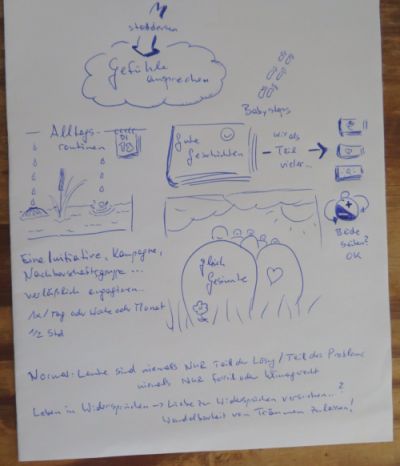 Gefühle
ansprechen
Babysteps
Alltags-
routinen
DI
Gute
Geschichten
wir als
Teil
vieler...
Eine Initiative, Kampagne,
Nachbarschaftsgruppe ...
verlässlich engagieren
1x/Tag oder Woche oder Monat
1/2 Std
gleich
Gesinnte
Beide
Seiten?
OK
Normal-Leute sind niemals NUR Teil der Lösg/Teil des Problems
niemals NUR Fossil oder Klimagerecht
Leben in Widersprüchen → Liebe zu Widersprüchen verstehen...?
Wandelbarkeit von Träumen zulassen!